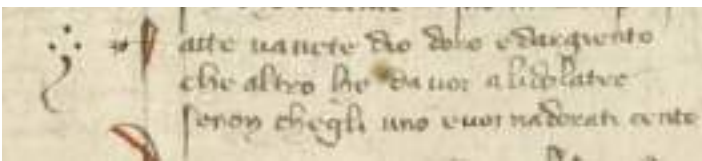 fatte vauete dio doro edargiento
che altro he da uoi alidolatre
senon chegli uno euoi nadorati cento